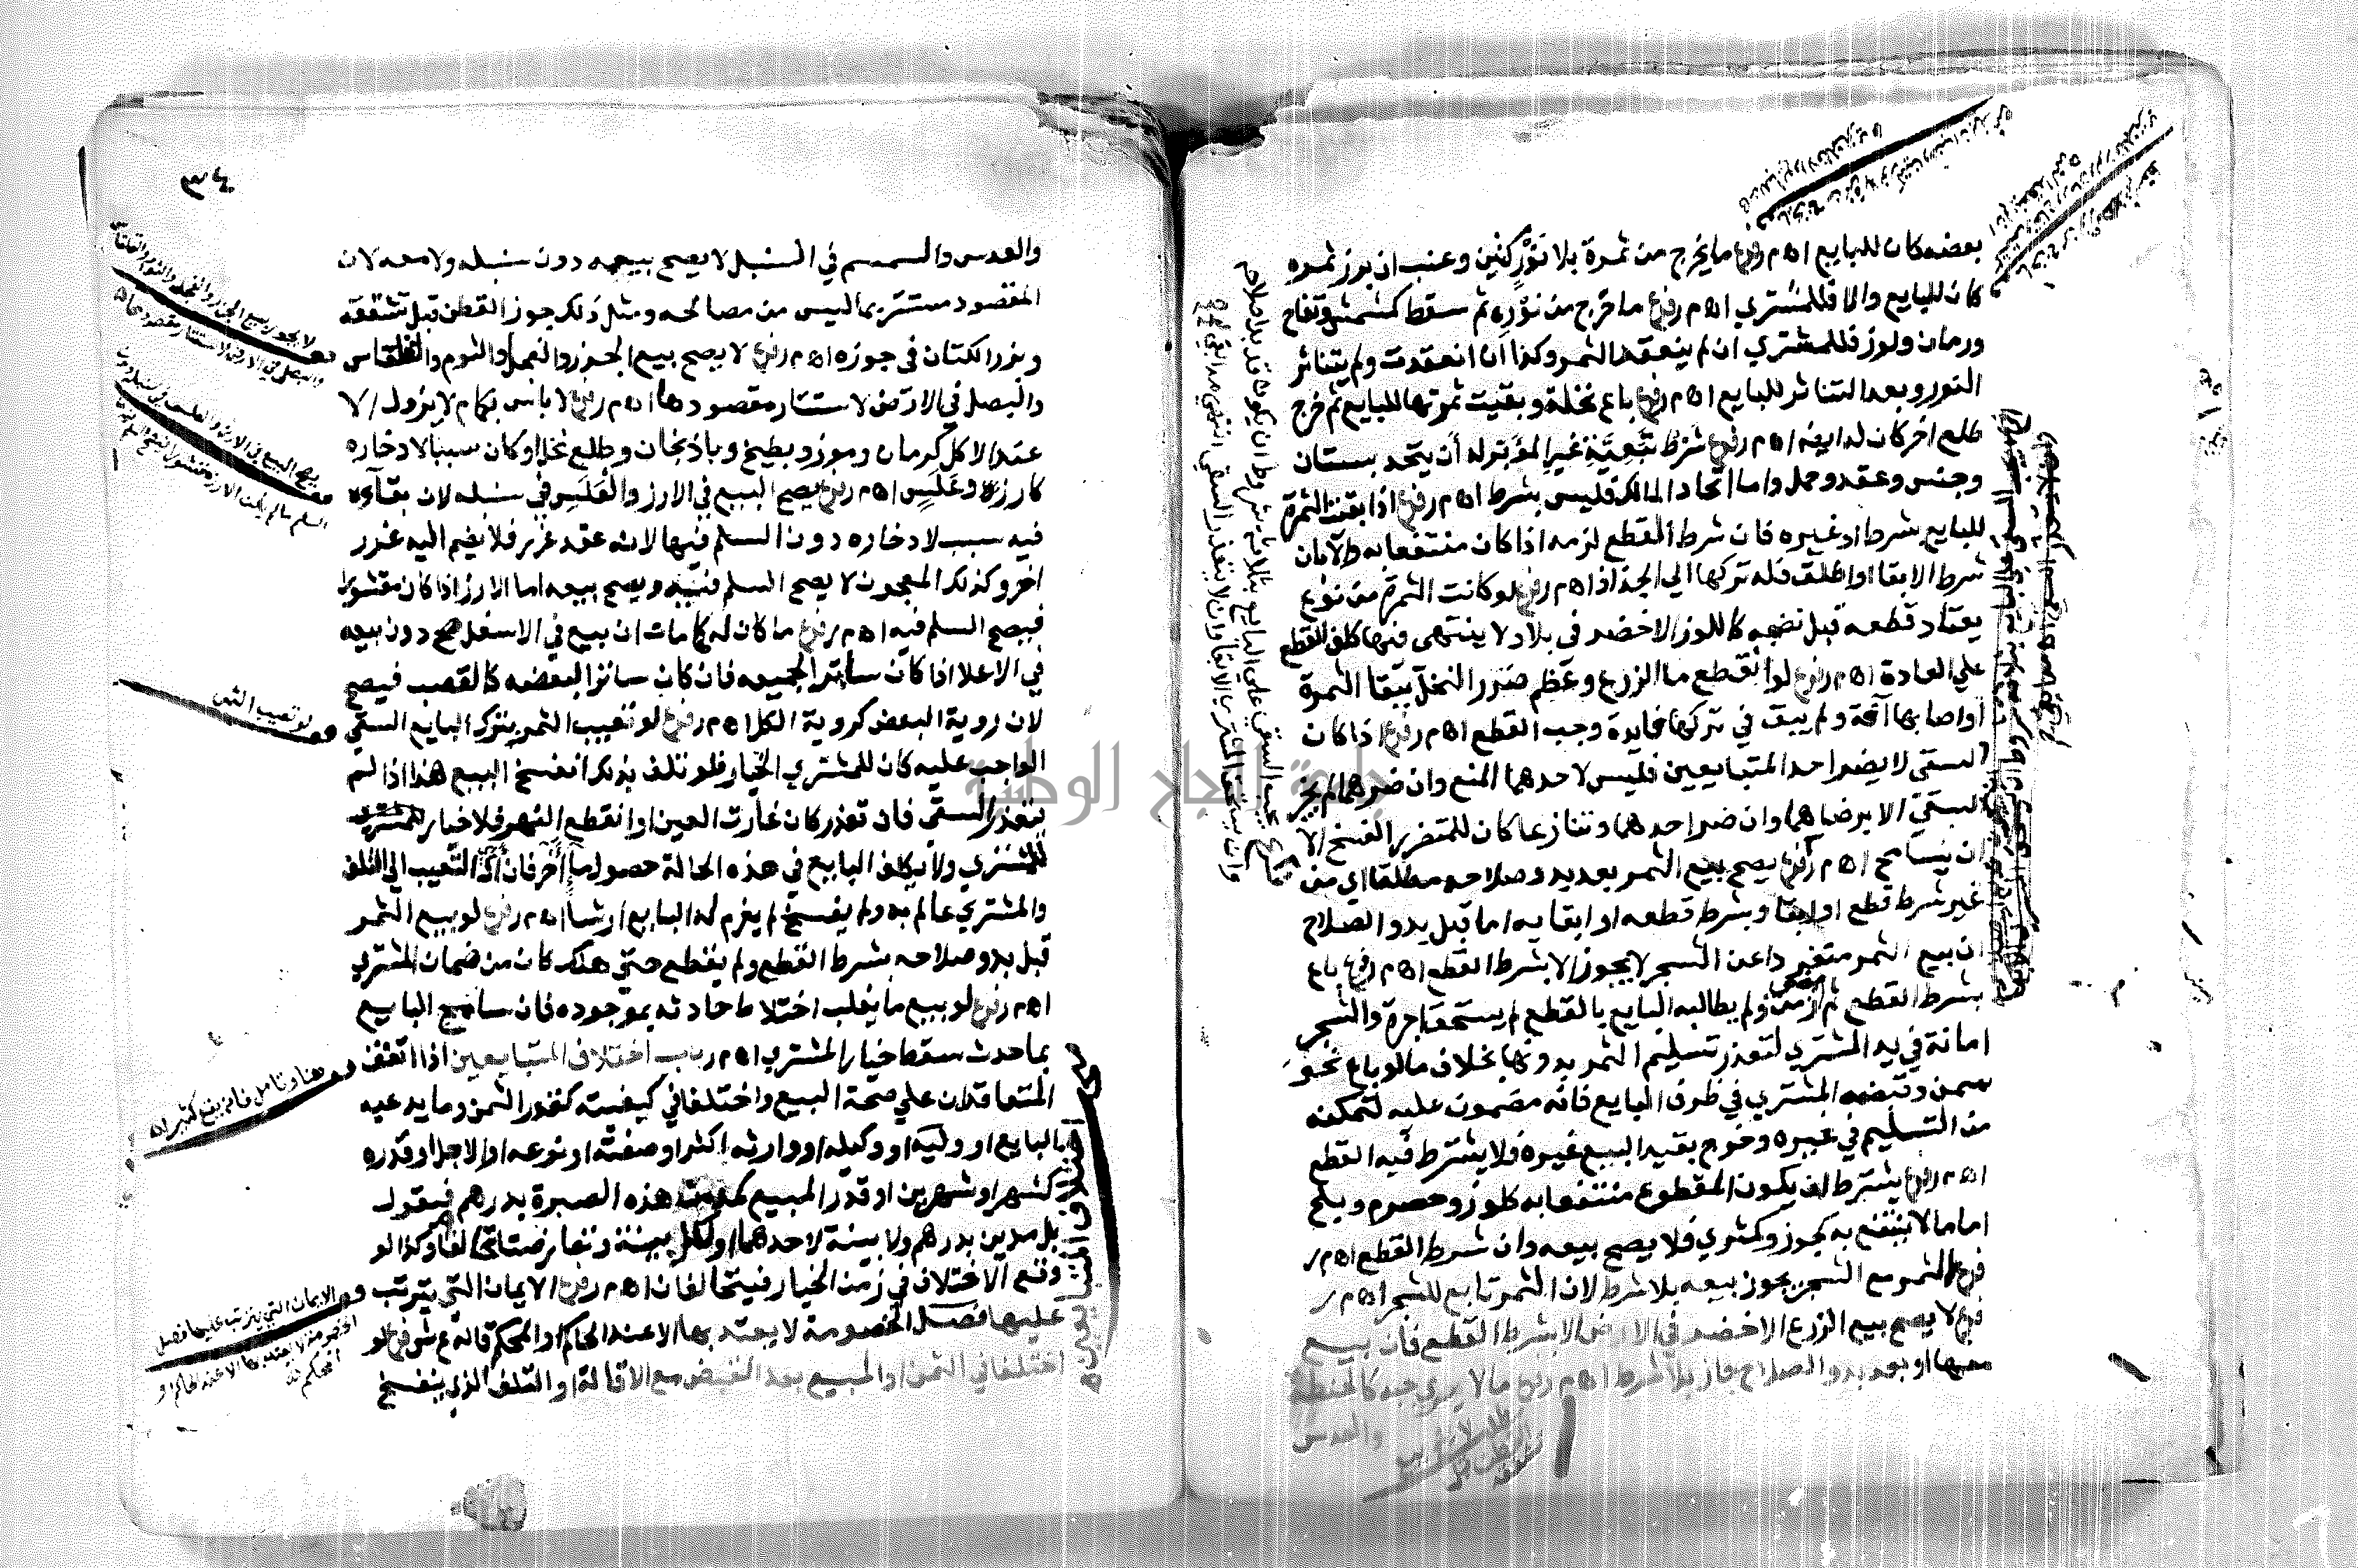 بعضه كان للبايع اه م ر فرع ما يخرج من ثمرة بلا نَوْر كتين وعنب ان برز ثمره
كان للبايع والا فللمشتري اه م ر فرع ما خرج من نَوْره ثم سقط كمشمش وتفاح
ورمان ولوز فللمشتري ان لم ينعقد الثمر وكذا ان انعقدت ولم يتناثر
النور وبعد التناثر للبايع اه م ر فرع باع نخلة وبقيت ثمرتها للبايع ثم خرج
طلع اخر كان له ايضا اه م ر فرع شرط تبعيّة غير المؤبر له أن يتحد بستان
وجنس وعقد وحمل واما اتحاد المالك فليس بشرط اه م ر فرع اذا بقيت الثمرة
للبايع بشرط او غيره فان شرط القطع لزمه اذا كان منتفعا به والا بان
شرط الابقا او اطلق فله تركها الي الجذاذ اه م ر فرع لو كانت الثمرة من نوع
يعتاد قطعه قبل نضجه كاللوز الاخضر في بلاد لا ينتهى فيها كلف القطع
علي العادة اه م ر فرع لو انقطع ما الزرع وعظم ضرر النخل ببقا الثمرة
أو اصابها آفة ولم يبق في تركها فايدة وجب القطع اه م ر فرع اذا كان
السقي لا يضر احد المتبايعين فليس لاحدهما المنع وان ضرهما لم يجز
السقي الا برضاهما وان ضر احدهما وتنازعا كان للمتضرر الفسخ الا
ان يسامح اه م ر فرع يصح بيع الثمر بعد بدو صلاحه مطلقا اي من
غير شرط قطع او ابقا وبشرط قطعه او ابقايه اما قبل بدو الصلاح
ان بيع الثمر منفردا عن الشجر لا يجوز الا بشرط القطع اه م ر فرع باع
بشرط القطع ثم زمن ولم يطالبه البايع بالقطع لم يستحق اجرة والشجر
امانة في يد المشتري لتعذر تسليم الثمر بدونها بخلاف ما لو باع نحو
سمن وقبضه المشتري في ظرف البايع فانه مضمون عليه لتمكنه
من التسليم في غيره وخرج بقيد البيع غيره فلا يشترط فيه القطع
اه م ر فرع يشترط ان يكون المقطوع منتفعا به كلوز وحصرم وبلح
اما ما لا ينتفع به كجوز وكمثري فلا يصح بيعه وان شرط القطع اه م ر
فرع الثمر مع الشجر يجوز بيعه بلا شرط لان الثمر تابع للشجر اه م ر
فرع لا يصح بيع الزرع الاخضر في الارض الا بشرط القطع فان بيع
معها او بعد بدو الصلاح جاز بلا شرط اه م ر فرع ما لا يري حبه كالحنطة
والعدس
٣٤
والعدس والسمسم في السنبل لا يصح بيعه دون سنبله ولا معه لان
المقصود مستتر بما ليس من مصالحه ومثل ذلك جوز القطن قبل تشققه
وبزر الكتان في جوزه اه م ر فرع لا يصح بيع الجزر والفجل والثوم والقلقاس
والبصل في الارض لاستتار مقصودها اه م ر فرع لا باس بكمام لا يزول الا
عند الاكل كرمان وموز وبطيخ وباذنجان وطلع نخل او كان سببا لادخاره
كارز وعَلَس اه م ر فرع يصح البيع في الارز والعَلَس في سنبله لان بقآءه
فيه سبب لادخاره دون السلم فيها لانه عقد غرر فلا يضم اليه غرر
اخر وكذلك المعجون لا يصح السلم فيه ويصح بيعه اما الارز اذا كان مقشورا
فيصح السلم فيه اه م ر فرع ما كان له كمامان بيع في الاسفل صح دون بيعه
في الاعلا اذا كان ساترا لجميعه فان كان ساترا لبعضه كالقصب فيصح
لان روية البعض كروية الكل اه م ر فرع لو تعيب الثمر بترك البايع السقي
الواجب عليه كان للمشتري الخيار فلو تلف بذلك انفسخ البيع هذا اذا لم
يتعذر السقي فان تعذر كان غارت العين او انقطع النهر فلا خيار للمشتري
للمشتري ولا يكلف البايع في هذه الحالة حصول ما آخر فان ادى التعيب الى التلف
والمشتري عالم به ولم يفسخ لم يغرم له البايع ارشا اه م ر فرع لو بيع الثمر
قبل بدو صلاحه بشرط القطع ولم يقطع حتي هلك كان من ضمان المشتري
اه م ر فرع لو بيع ما يغلب اختلاط حادثه بموجوده فان سامح البايع
بما حدث سقط خيار المشتري اه م ر باب اختلاف المتبايعين اذا اتفق
المتعاقدان علي صحة البيع واختلفا في كيفيته كقدر الثمن وما يدعيه
البايع او وليه او وكيله او وارثه اكثر او صفته او نوعه او الاجل او قدره
كشهر او شهرين او قدر المبيع كبعت هذه الصبرة بدرهم فيقول
بل مدين بدرهم ولا بينة لاحدهما او لكل بينة وتعارضتا تحالفا وكذا لو
وقع الاختلاف في زمن الخيار فيتحالفان اه م ر فرع الايمان التي يترتب
عليها فصل الخصومة لا يعتد بها الا عند الحاكم او المحكم قاله ع ش فرع لو
اختلفا في الثمن او المبيع بعد القبض مع الاقالة او التلف الذي ينفسخ
لا يجوز بيع الجزر والفجل والثوم والقلقاس
والبصل في الارض لاستتار مقصودها
لو تعيب الثمر
الايمان التي يترتب عليها فصل
الخصومة لا يعتد بها الا عند الحاكم او
المحكم
جامعة النجاح الوطنية